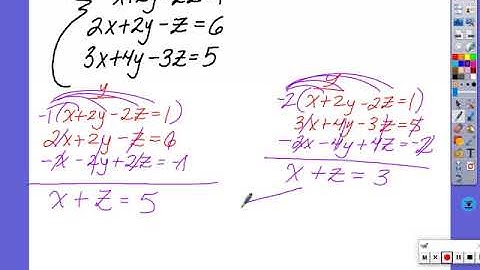 2x+2y-z=6
3x+4y-3z=5
y
-1(x+2y-2z=1)
2x+2y-z=6
-x-2y+2z=-1
x+z=5
y
-2(x+2y-2z=1)
3x+4y-3z=5
-2x-4y+4z=-2
x+z=3